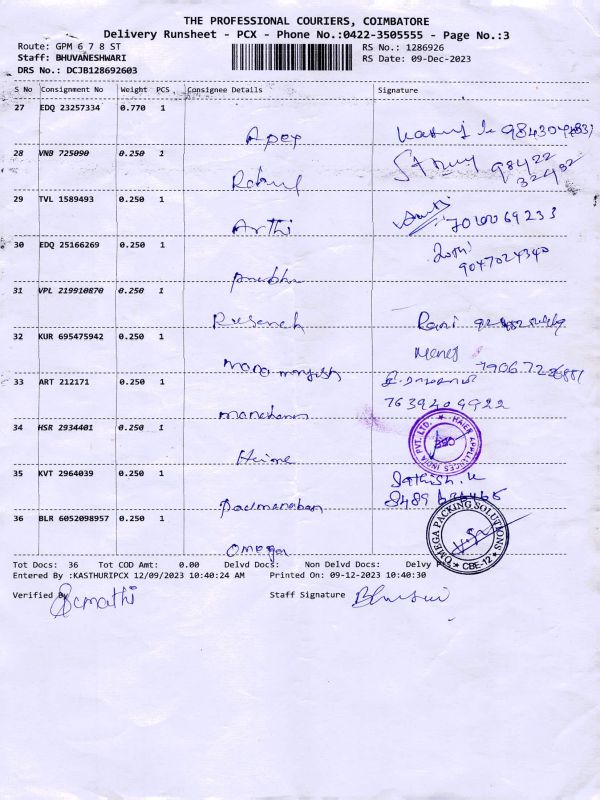 THE PROFESSIONAL COURIERS, COIMBATORE
Delivery Runsheet - PCX - Phone No.:0422-3505555 - Page No.:3
Route: GPM 6 7 8 ST RS No.: 1286926
Staff: BHUVANESHWARI RS Date: 09-Dec-2023
DRS No.: DCJB128692603
S No Consignment No Weight PCS Consignee Details Signature
27 EDQ 23257334 0.770 1
Apex
28 VNB 725090 0.250 1
98422
32432
Rahul
29 TVL 1589493 0.250 1
Arthi 7010069233
30 EDQ 25166269 0.250 1
9047024340
Prabhu
31 VPL 219910870 0.250 1
Rani
32 KUR 695475942 0.250 1
Manoj
33 ART 212171 0.250 1
7639409922
Manoharan
34 HSR 2934401 0.250 1
HAIER APPLIANCES INDIA PVT. LTD.
35 KVT 2964039 0.250 1
Sathish. K
Padmanaban
36 BLR 6052098957 0.250 1
OMEGA PACKING SOLUTIONS
CBE-12
Omega
Tot Docs: 36 Tot COD Amt: 0.00 Delvd Docs: Non Delvd Docs: Delvy
Entered By :KASTHURIPCX 12/09/2023 10:40:24 AM Printed On: 09-12-2023 10:40:30
Verified By Staff Signature